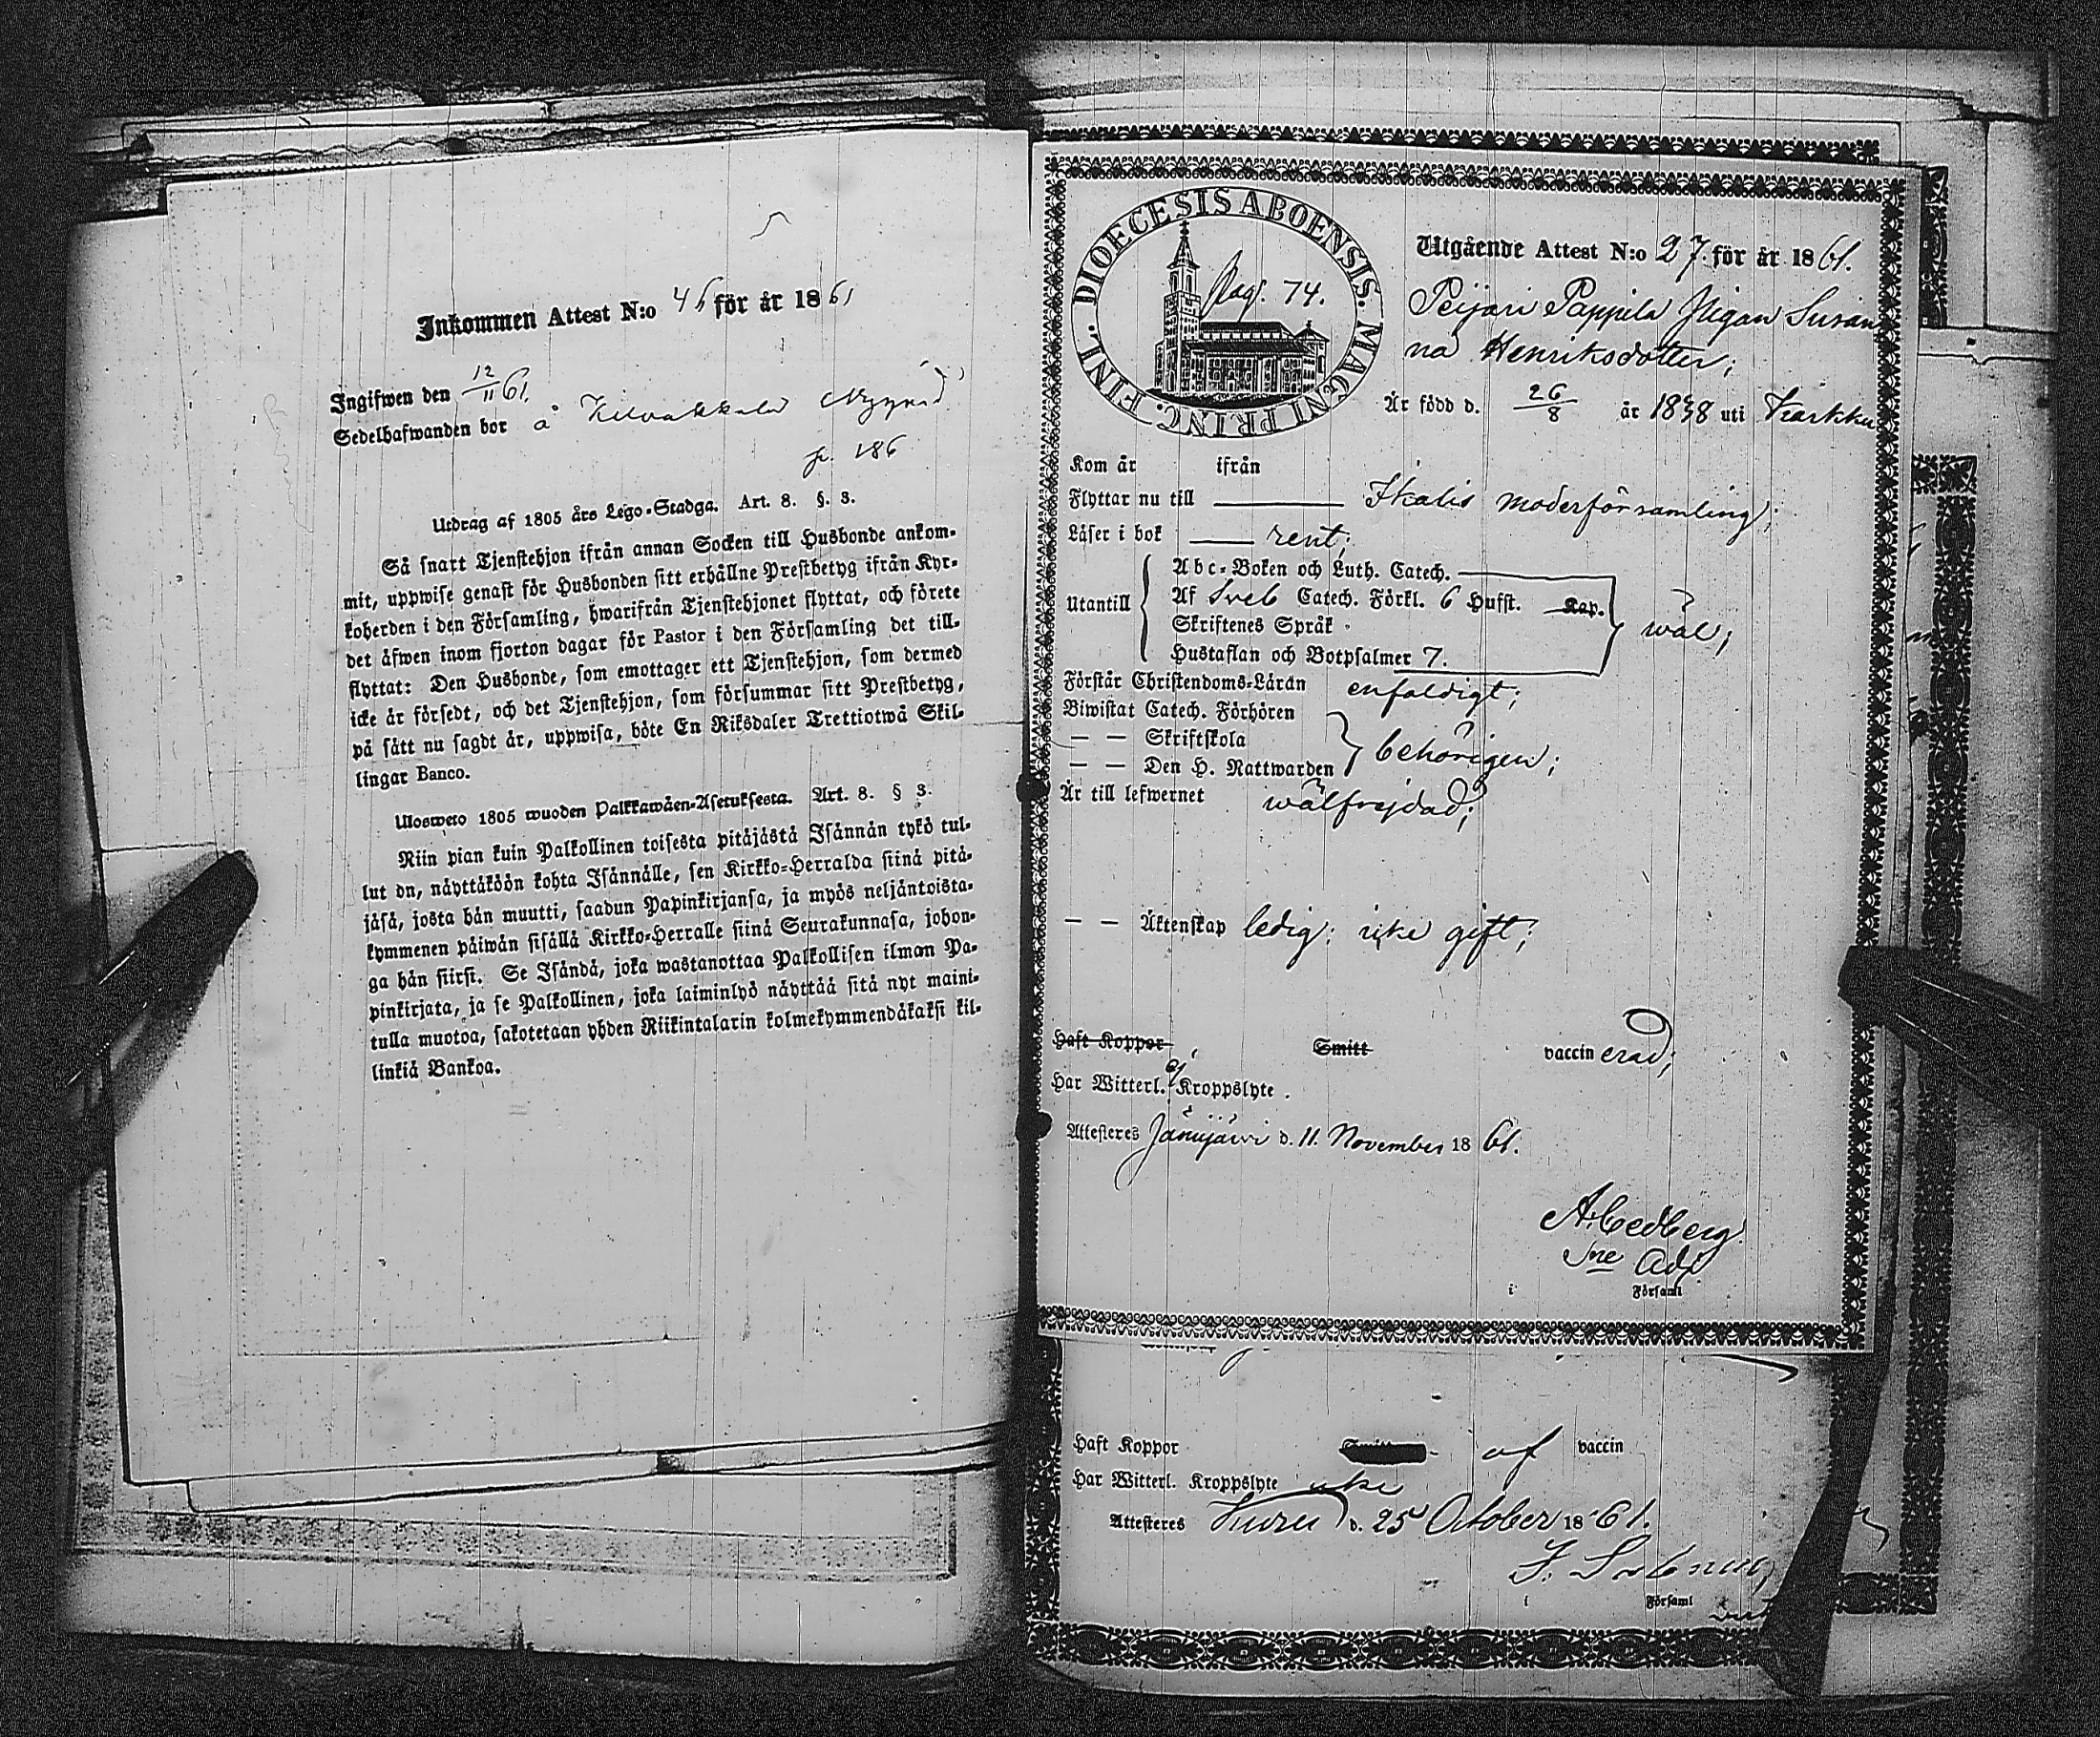 Inkommen Attest N:o 46 för år 1861
Ingifwen den 12/11 61.
Sedelhafwanden bor å Kilvakkala
p. 186
Utdrag af 1805 års Lego-Stadga. Art. 8. §. 3.
Så snart Tjenstehjon ifrån annan Socken till Husbonde ankom-
mit, uppwise genast för Husbonden sitt erhållne Prestbetyg ifrån Kyr-
koherden i den Församling, hwarifrån Tjenstehjonet flyttat, och förete
det äfwen inom fjorton dagar för Pastor i den Församling det till-
flyttat: Den Husbonde, som emottager ett Tjenstehjon, som dermed
icke är försedt, och det Tjenstehjon, som försummar sitt Prestbetyg,
på sätt nu sagdt är, uppwisa, böte En Riksdaler Trettiotwå Skil-
lingar Banco.
Uloswеto 1805 wuoden Palkkawäen-Asetuksesta. Art. 8. § 3.
Niin pian kuin Palkollinen toisesta pitäjästä Isännän tykö tul-
lut on, näyttäköön kohta Isännälle, sen Kirkko-Herralda siinä pitä-
jäsä, josta hän muutti, saadun Papinkirjansa, ja myös neljäntoista-
kymmenen päiwän sisällä Kirkko-Herralle siinä Seurakunnasa, johon-
ga hän siirsi. Se Isändä, joka wastanottaa Palkollisen ilman Pa-
pinkirjata, ja se Palkollinen, joka laiminlyö näyttää sitä nyt maini-
tulla muotoa, sakotetaan yhden Riikintalarin kolmekymmendäkaksi kil-
linkiä Bankoa.
DIOECESIS ABOENSIS. MAGNI PRINC. FINL.
Pag. 74.
Utgående Attest N:o 27. för år 1861.
Peijari Pappila Pigan Susan
na Henriksdotter;
Är född d. 26/8 år 1838 uti Karkku
Kom år ifrån
Flyttar nu till Ikalis moderförsamling;
Läser i bok rent;
Utantill
Abc-Boken och Luth. Catech.
Af Sveb Catech. Förkl. 6 Hufst. Kap.
Skriftenes Språk
Hustaflan och Botpsalmer 7.
wäl;
Förstår Christendoms-Lärdn enfaldigt;
Biwistat Catech. Förhören
— — Skriftskola
— — Den H. Nattwarden
behörigen;
Är till lefwernet wälfrejdad;
— — Äktenskap ledig: icke gift;
Haft Koppor Smitt vaccinerad;
Har Witterl. ej Kroppslyte.
Attesteres Jämijärvi d. 11. November 1861.
A. Cedberg
Sne Adj
i Församl
Haft Koppor af vaccin
Har Witterl. Kroppslyte icke
Attesteres Kuru d. 25 October 1861.
i Församl